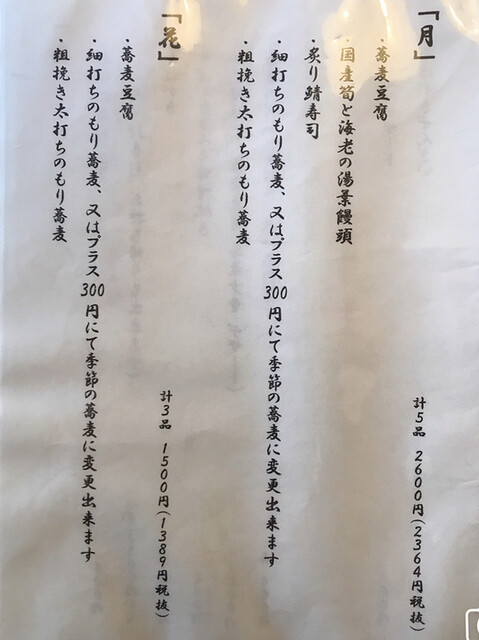 「月」
・蕎麦豆腐
・国産筍と海老の湯葉饅頭
・炙り鯖寿司
・細打ちのもり蕎麦、又はプラス300円にて季節の蕎麦に変更出来ます
・粗挽き太打ちのもり蕎麦
計5品 2600円(2364円税抜)
「花」
・蕎麦豆腐
・細打ちのもり蕎麦、又はプラス300円にて季節の蕎麦に変更出来ます
・粗挽き太打ちのもり蕎麦
計3品 1500円(1389円税抜)